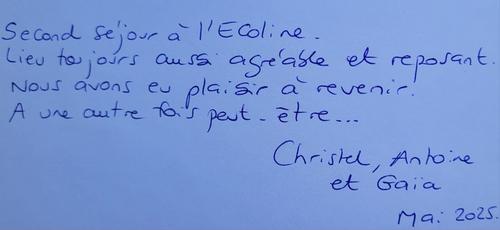 Second séjour à l'Ecoline.
Lieu toujours aussi agréable et reposant.
Nous avons eu plaisir à revenir.
A une autre fois peut-être...
Christel, Antoine
et Gaïa
Mai 2025.